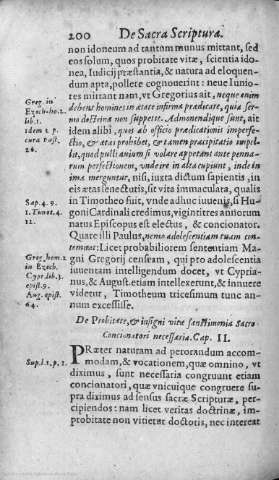 200 De Sacra Scriptura.
non idoneum ad tantum munus mittant, sed
eos solum, quos probitate vitæ, scientia ido-
nea, iudicij præstantia, & natura ad eloquen-
dum apta, pollere cognouerint: neue Iunio-
res mittant nam, vt Gregorius ait, neque enim
debent homines in ætate infirma prædicare, quia ser-
mo doctrinæ non suppetit. Admonendique sunt, ait
idem alibi, quos ab officio prædicationis imperfe-
ctio, & ætas prohibet, & tamen præcipitatio impel-
lit, quod pulli auium si volare appetant ante penna-
rum perfectionem, vnde ire in alta cupiunt, inde in
ima merguntur, nisi, iuxta dictum sapientis, in
eis ætas senectutis, sit vita immaculata, qualis
in Timotheo fuit, vnde adhuc iuuenis, si Hu-
goni Cardinali credimus, viginti tres annorum
natus Episcopus est electus, & concionator.
Quare illi Paulus, nemo adolescentiam tuam con-
temnat: Licet probabiliorem sententiam Ma-
gni Gregorij censeam, qui pro adolescentia
iuuentam intelligendum docet, vt Cypria-
nus, & August. etiam intellexerunt, & innuere
videtur, Timotheum tricesimum tunc an-
num excessisse.
De Probitate, & insigni vitæ sanctimonia Sacro
Concionatori necessaria. Cap. II.
PRæter naturam ad perorandum accom-
modam, & vocationem, quæ omnino, vt
diximus, sunt necessaria congruunt etiam
concionatori, quæ vnicuique congruere su-
pra diximus ad sensus sacræ Scripturæ, per-
cipiendos: nam licet veritas doctrinæ, im-
probitate non vitietur doctoris, nec intereat
Greg. in
Ezech. ho. 2.
lib. 1.
idem 2 p.
cura Past.
26.
Sap. 4. 9.
1. Timot. 4.
12.
Greg. hom. 2
in Ezech.
Cypr. lib. 3.
epist. 9.
Aug. epist.
64.
Sup. l. 1. p. 1.